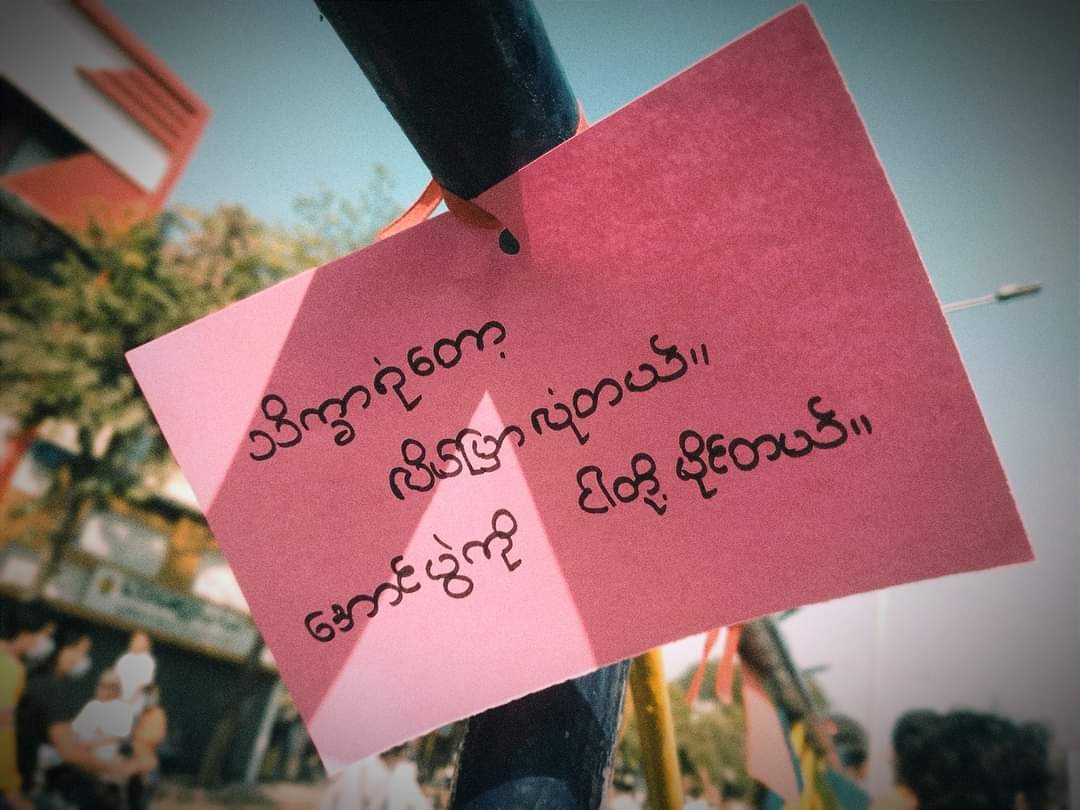 သိက္ခာရုံတော့
လိပ်ပြာလုံတယ်။
အောင်ပွဲကို ငါတို့ ပိုင်တယ်။